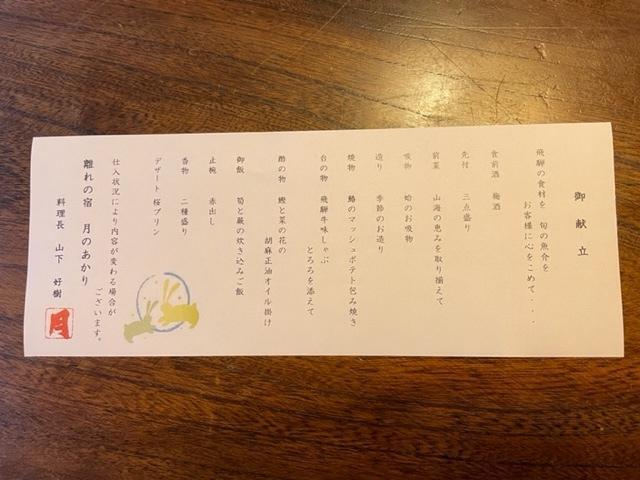 御献立
飛騨の食材を 旬の魚介を
お客様に心をこめて・・・
食前酒 梅酒
先付 三点盛り
前菜 山海の恵みを取り揃えて
吸物 蛤のお吸物
造り 季節のお造り
焼物 鰆のマッシュポテト包み焼き
台の物 飛騨牛味しゃぶ
とろろを添えて
酢の物 鰹と菜の花の
胡麻正油オイル掛け
御飯 筍と蕨の炊き込みご飯
止椀 赤出し
香物 二種盛り
デザート 桜プリン
仕入状況により内容が変わる場合が
ございます。
離れの宿 月のあかり
料理長 山下 好樹
月